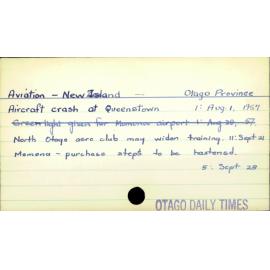 Aviation - New Zealand - Otago Province
Aircraft crash at Queenstown 1: Aug. 1, 1957
Green light given for Momona airport 1: Aug 30, 57
North Otago aero club may widen training. 11: Sept 21
Momona - purchase steps to be hastened.
5: Sept 28
OTAGO DAILY TIMES